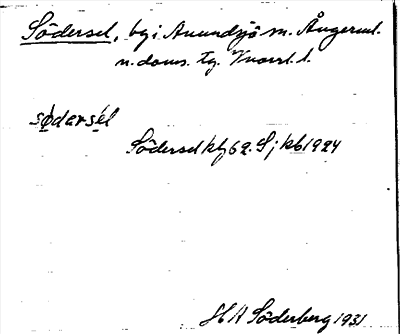 Södersel, by i Anundsjö sn. Ångerml.
n. doms. tg. Vnorrl. l.
södarsél
Södersel klj 62. S; kb 1924
H A Söderberg 1931